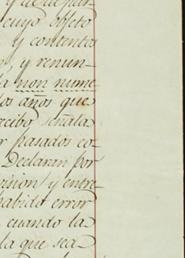 y de depar-
cuyo efeto
y contentos
, y renun-
la non nume
dos años que
recibo señala
r pasados co-
Declaran por
vision, y entre-
habido error
cuando la
la que sea